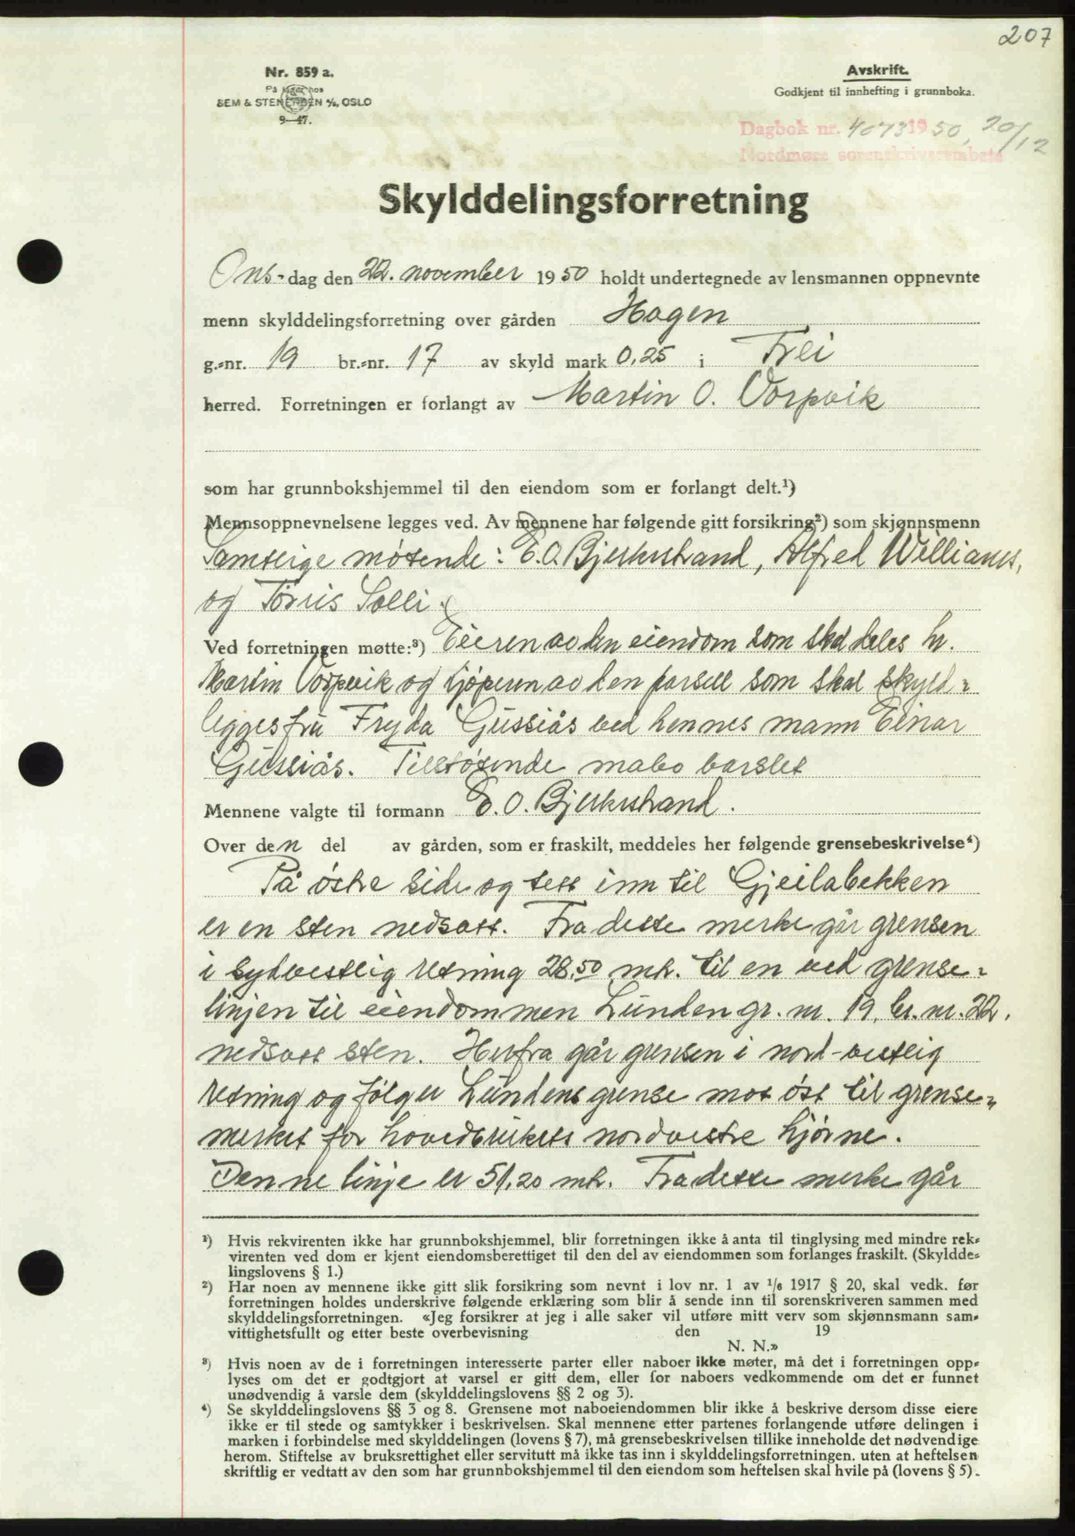 207
Nr. 859 a.
På lager hos
SEM & STENERSEN A/S, OSLO
9—47.
Avskrift.
Godkjent til innhefting i grunnboka.
Dagbok nr. 4073 1950, 20/12
Nordmøre sorenskriverembete
Skylddelingsforretning
Ons-dag den 22. november 1950 holdt undertegnede av lensmannen oppnevnte
menn skylddelingsforretning over gården Hagen
g.-nr. 19 br.-nr. 17 av skyld mark 0,25 i Frei
herred. Forretningen er forlangt av Martin O. Vorpvik
som har grunnbokshjemmel til den eiendom som er forlangt delt.¹)
Mennsoppnevnelsene legges ved. Av mennene har følgende gitt forsikring²) som skjønnsmenn
Samtlige møtende: E.O. Bjerkestrand, Alfred Williams,
og Tøris Solli.
Ved forretningen møtte:³) Eieren av den eiendom som skal deles hr.
Martin Vorpvik og kjøperen av den parsell som skal skyld-
legges fru Fryda Gussiås ved hennes mann Einar
Gussiås. Tilstøtende nabo varslet
Mennene valgte til formann E. O. Bjerkestrand.
Over den del av gården, som er fraskilt, meddeles her følgende grensebeskrivelse⁴)
På østre side og tett inn til Gjeilabekken
er en sten nedsatt. Fra dette merke går grensen
i sydvestlig retning 28.50 mtr. til en ved grense-
linjen til eiendommen Lunden gr. nr. 19, br. nr. 22.
nedsatt sten. Herfra går grensen i nord-vestlig
retning og følger Lundens grense mot øst til grense-
merket for hovedbrukets nordvestre hjørne.
Denne linje er 51,20 mtr. Fra dette merke går
¹) Hvis rekvirenten ikke har grunnbokshjemmel, blir forretningen ikke å anta til tinglysing med mindre rek-
virenten ved dom er kjent eiendomsberettiget til den del av eiendommen som forlanges fraskilt. (Skyldde-
lingslovens § 1.)
²) Har noen av mennene ikke gitt slik forsikring som nevnt i lov nr. 1 av 1/6 1917 § 20, skal vedk. før
forretningen holdes underskrive følgende erklæring som blir å sende inn til sorenskriveren sammen med
skylddelingsforretningen. «Jeg forsikrer at jeg i alle saker vil utføre mitt verv som skjønnsmann sam-
vittighetsfullt og etter beste overbevisning den 19
N. N.»
³) Hvis noen av de i forretningen interesserte parter eller naboer ikke møter, må det i forretningen opp-
lyses om det er godtgjort at varsel er gitt dem, eller for naboers vedkommende om det er funnet
unødvendig å varsle dem (skylddelingslovens §§ 2 og 3).
⁴) Se skylddelingslovens §§ 3 og 8. Grensene mot naboeiendommen blir ikke å beskrive dersom disse eiere
ikke er til stede og samtykker i beskrivelsen. Skal mennene etter partenes forlangende utføre delingen i
marken i forbindelse med skylddelingen (lovens § 7), må grensebeskrivelsen tillike inneholde det nødvendige
herom. Stiftelse av bruksrettighet eller servitutt må ikke tas inn i skylddelingsforretningen, uten at heftelsen
skriftlig er vedtatt av den som har grunnbokshjemmel til den eiendom som heftelsen skal hvile på (lovens § 5).